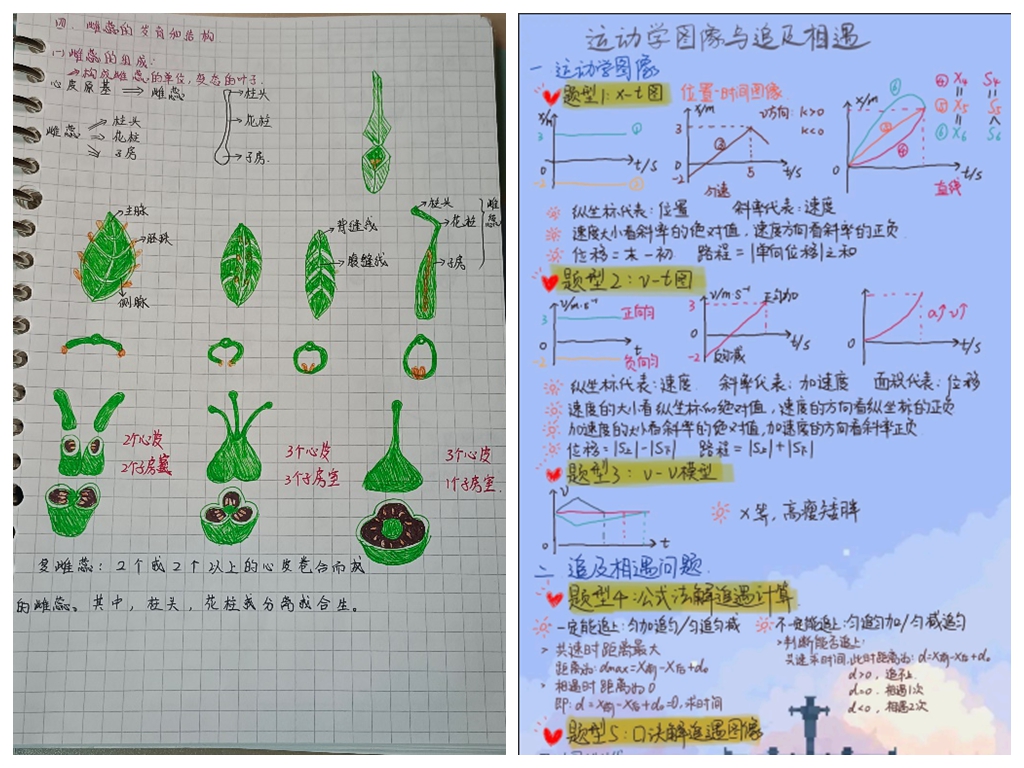 四. 雌蕊的发育和结构
(一)雌蕊的组成:
→构成雌蕊的单位,变态的叶子.
心皮原基 ⟹ 雌蕊
柱头
花柱
子房.
雌蕊
柱头
花柱
子房
主脉
胚珠
侧脉
背缝线
腹缝线
柱头
花柱
子房
雌蕊
2个心皮
2个子房室
3个心皮
3个子房室
3个心皮
1个子房室.
复雌蕊: 2个或2个以上的心皮卷合而成
的雌蕊。其中, 柱头, 花柱或分离或合生。
运动学图像与追及相遇
一 运动学图像
题型1: x-t图 位置-时间图像
x/m
3
0
-2
t/s
①
②
x/m
v方向: k>0
k<0
3
0
-2
③
5
t/s
匀速
x/m
0
t/s
④
⑤
⑥
直线
④ X₄ S₄
॥ ॥
⑤ X₅ S₅
॥ ∧
⑥ X₆ S₆
纵坐标代表:位置 斜率代表:速度
速度大小看斜率的绝对值,速度方向看斜率的正负
位移=末-初 路程=|单向位移|之和
题型2: v-t图
v/m·s⁻¹
3
0
-2
t
正向匀
负向匀
v/m·s⁻¹
3
0
-2
正匀加
负匀减
t/s
0
a↑v↑
t/s
纵坐标代表:速度 斜率代表:加速度 面积代表:位移
速度的大小看纵坐标的绝对值,速度的方向看纵坐标的正负
加速度的大小看斜率的绝对值,加速度的方向看斜率正负
位移=|S上|-|S下| 路程=|S上|+|S下|
题型3: v-v模型
v
0
t
x等,高瘦矮胖
二 追及相遇问题
题型4:公式法解追遇计算
一定能追上:匀加追匀/匀追匀减
> 共速时距离最大
距离为: dmax=X前-X后+d₀
> 相遇时距离为0
即: d=X前-X后+d₀=0,求时间
不一定能追上:匀追匀加/匀减追匀
>判断能否追上:
共速求时间,此时距离为: d=X前-X后+d₀
d>0, 追不上
d=0, 相遇1次
d<0, 相遇2次
题型5:口诀解追遇图像